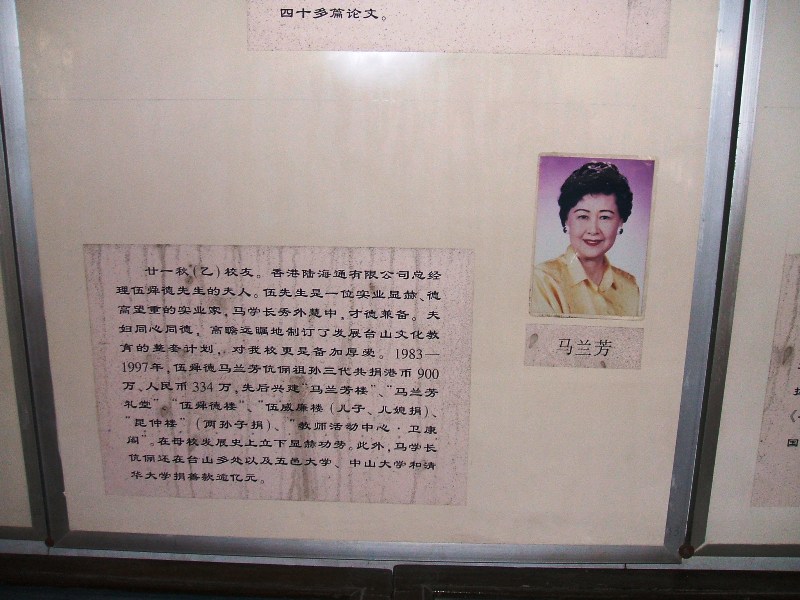 四十多篇论文。
廿一秋(乙)校友。香港陆海通有限公司总经
理伍舜德先生的夫人。伍先生是一位实业显赫、德
高望重的实业家，马学长秀外慧中，才德兼备。夫
妇同心同德，高瞻远瞩地制订了发展台山文化教
育的整套计划，对我校更是备加厚爱。1983—
1997年，伍舜德马兰芳伉俪祖孙三代共捐港币900
万、人民币334万，先后兴建"马兰芳楼"、"马兰芳
礼堂"、"伍舜德楼"、"伍威廉楼（儿子、儿媳捐）、
"昆仲楼"（两孙子捐）、"教师活动中心·卫康
阁"。在母校发展史上立下显赫功劳。此外，马学长
伉俪还在台山多处以及五邑大学、中山大学和清
华大学捐善款逾亿元。
马兰芳
国